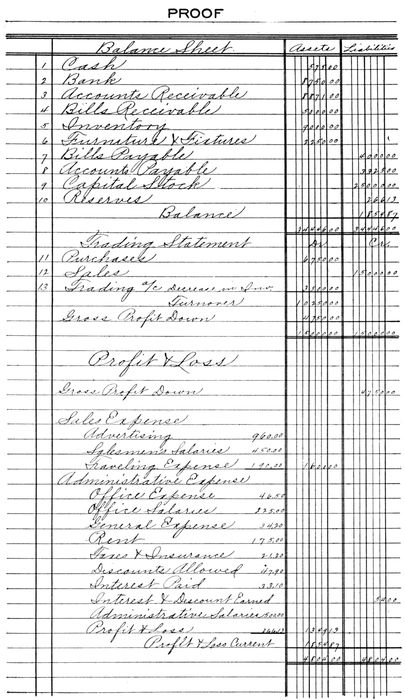 PROOF
Balance Sheet Assets Liabilities
1 Cash 575 00
2 Bank 8750 00
3 Accounts Receivable 8871 00
4 Bills Receivable 5000 00
5 Inventory 9000 00
6 Furniture & Fixtures 2250 00
7 Bills Payable 4000 00
8 Accounts Payable 3325 00
9 Capital Stock 25000 00
10 Reserves 266 13
Balance 1854 87
34446 00 34446 00
Trading Statement Dr. Cr.
11 Purchases 6750 00
12 Sales 15000 00
13 Trading a/c Decrease in Inv. 3500 00
Turnover 10250 00
Gross Profit Down 4750 00
15000 00 15000 00
Profit & Loss
Gross Profit Down 4750 00
Sales Expense
Advertising 960.00
Salesmens Salaries 450.00
Traveling Expense 190.00 1600 00
Administrative Expense
Office Expense 46.50
Office Salaries 325.00
General Expense 34.20
Rent 175.00
Taxes & Insurance 21.30
Discounts Allowed 47.90
Interest Paid 33.10
Interest & Discount Earned 54 00
Administrative Salaries 500.00
Profit & Loss 166.13 1349 13
Profit & Loss Current 1854 87
4804 00 4804 00